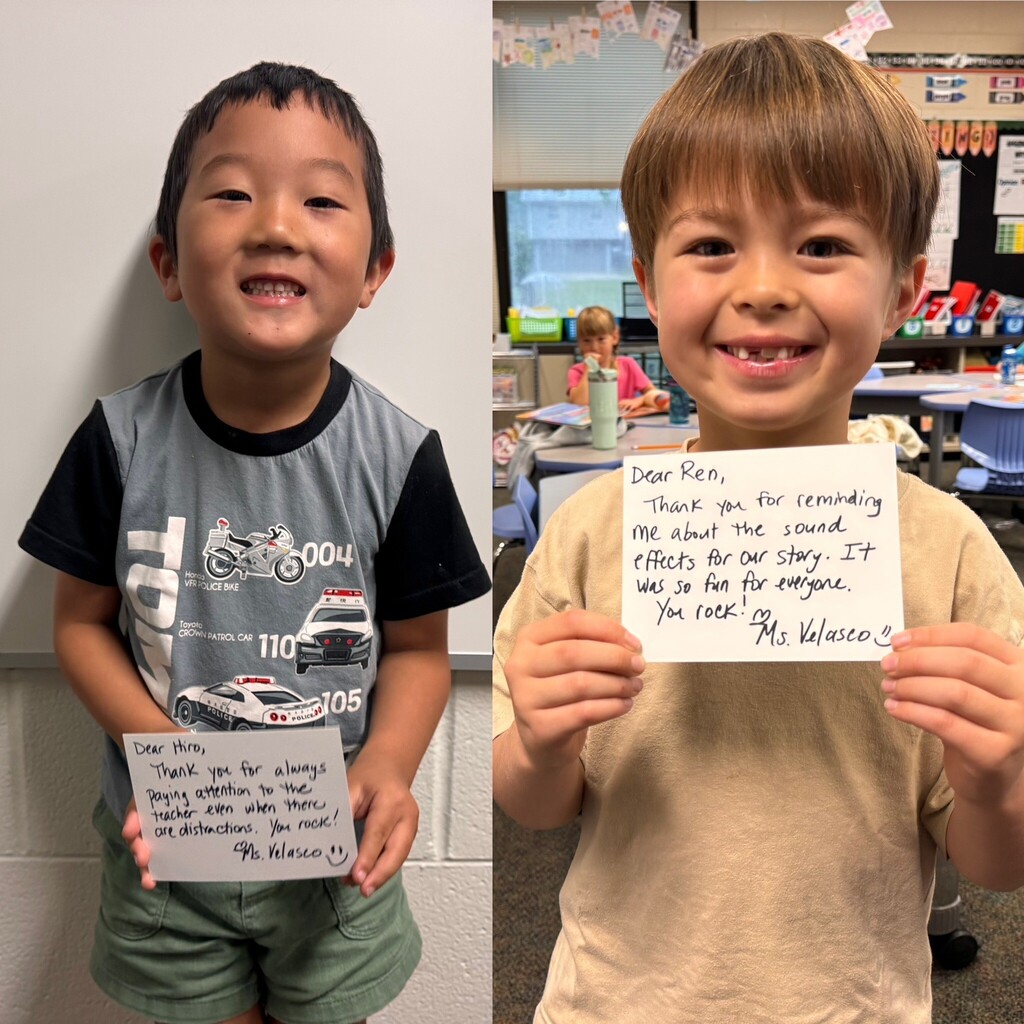 TOM
Honda
VFR POLICE BIKE
004
Toyota
CROWN PATROL CAR
110
105
POLICE
Dear Hiro,
Thank you for always
paying attention to the
teacher even when there
are distractions. You rock!
♡Ms. Velasco
Dear Ren,
Thank you for reminding
me about the sound
effects for our story. It
was so fun for everyone.
You rock!
♡Ms. Velasco